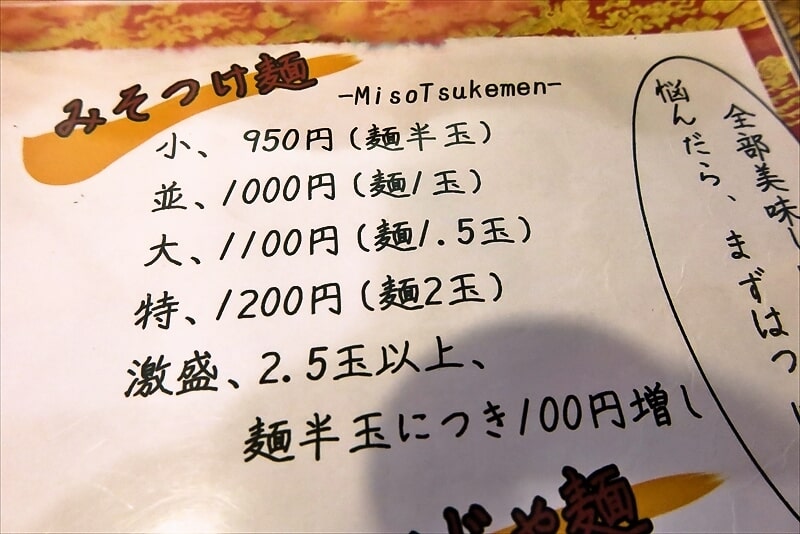 みそつけ麺
-MisoTsukemen-
小、950円(麺半玉)
並、1000円(麺1玉)
大、1100円(麺1.5玉)
特、1200円(麺2玉)
激盛、2.5玉以上、
麺半玉につき100円増し
全部美味し
悩んだら、まずはつ
じゃ麺